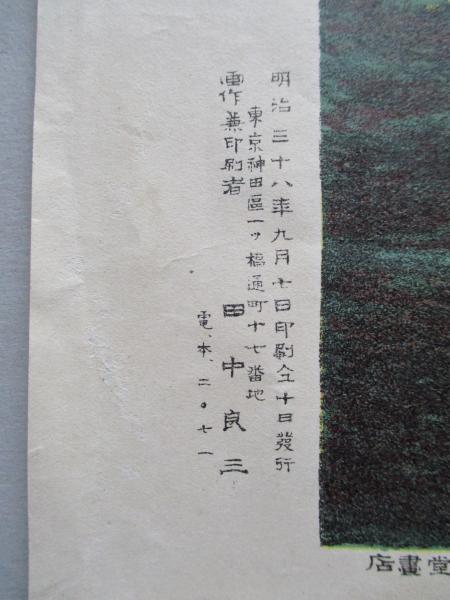 明治三十八年九月七日印刷仝十日發行
東京神田區一ッ橋通町十七番地
画作兼印刷者 田中良三
電、本、二〇七一
店畫堂